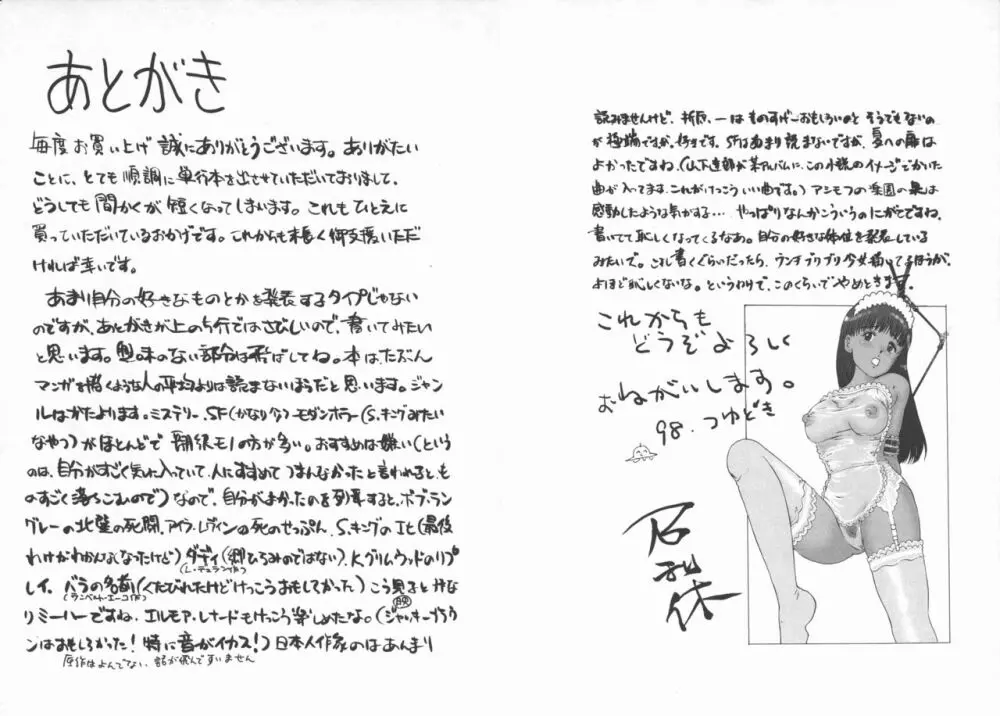 あとがき
毎度お買い上げ誠にありがとうございます。ありがたい
ことに、とても順調に単行本を出させていただいておりまして、
どうしても間かくが短くなってしまいます。これもひとえに
買っていただいているおかげです。これからも末長く御支援いただ
ければ幸いです。
あまり自分の好きなものとかを発表するタイプじゃない
のですが、あとがきが上の5行ではさびしいので、書いてみたい
と思います。興味のない部分は飛ばしてね。本は、たぶん
マンガを描くような人の平均よりは読まないほうだと思います。ジャン
ルはかたよります。ミステリー、SF(かなり少)モダンホラー(S.キングみたい
なやつ)がほとんどで翻訳モノの方が多い。おすすめは嫌い(という
のは、自分がすごく気に入っていて、人にすすめてつまんなかったと言われると、も
のすごく落ちこむので)なので、自分がよかったのを列挙すると、ボブ・ラン
グレーの北壁の死闘、アイラ・レヴィンの死のせっぷん、S.キングのIt(最後
わけがわかんなくなったけど)ダディ(郷ひろみのではない)、K.グリムウッドのリプ
(L.デュラン作)
レイ、バラの名前(くたびれたけどけっこうおもしろかった)こう見るとかな
(ウンベルト・エーコ作)
りミーハーですね。エルモア・レナードもけっこう楽しめたな。(映 ジャッキーブラウ
ンはおもしろかった!特に音がイカス!)日本人作家のはあんまり
原作はよんでない、話が飛んですいません
読みませんけど、折原 一はものすげーおもしろいのとそうでもないの
が極端ですが、好きです。SFはあまり読まないですが、夏への扉は
よかったですね。(山下達郎が某アルバムに、この小説のイメージでかいた
曲が入ってます、これがけっこういい曲です。)アシモフの楽園の果は
感動したような気がする… やっぱりなんかこういうのにがてですね、
書いてて恥しくなってくるなあ。自分の好きな体位を発表している
みたいで。こんなの書くぐらいだったら、ウンチブリブリ少女描いてるほうが、
よほど恥しくないな。というわけで、このくらいでやめときます。
これからも
どうぞよろしく
おねがいします。
98. つゆどき